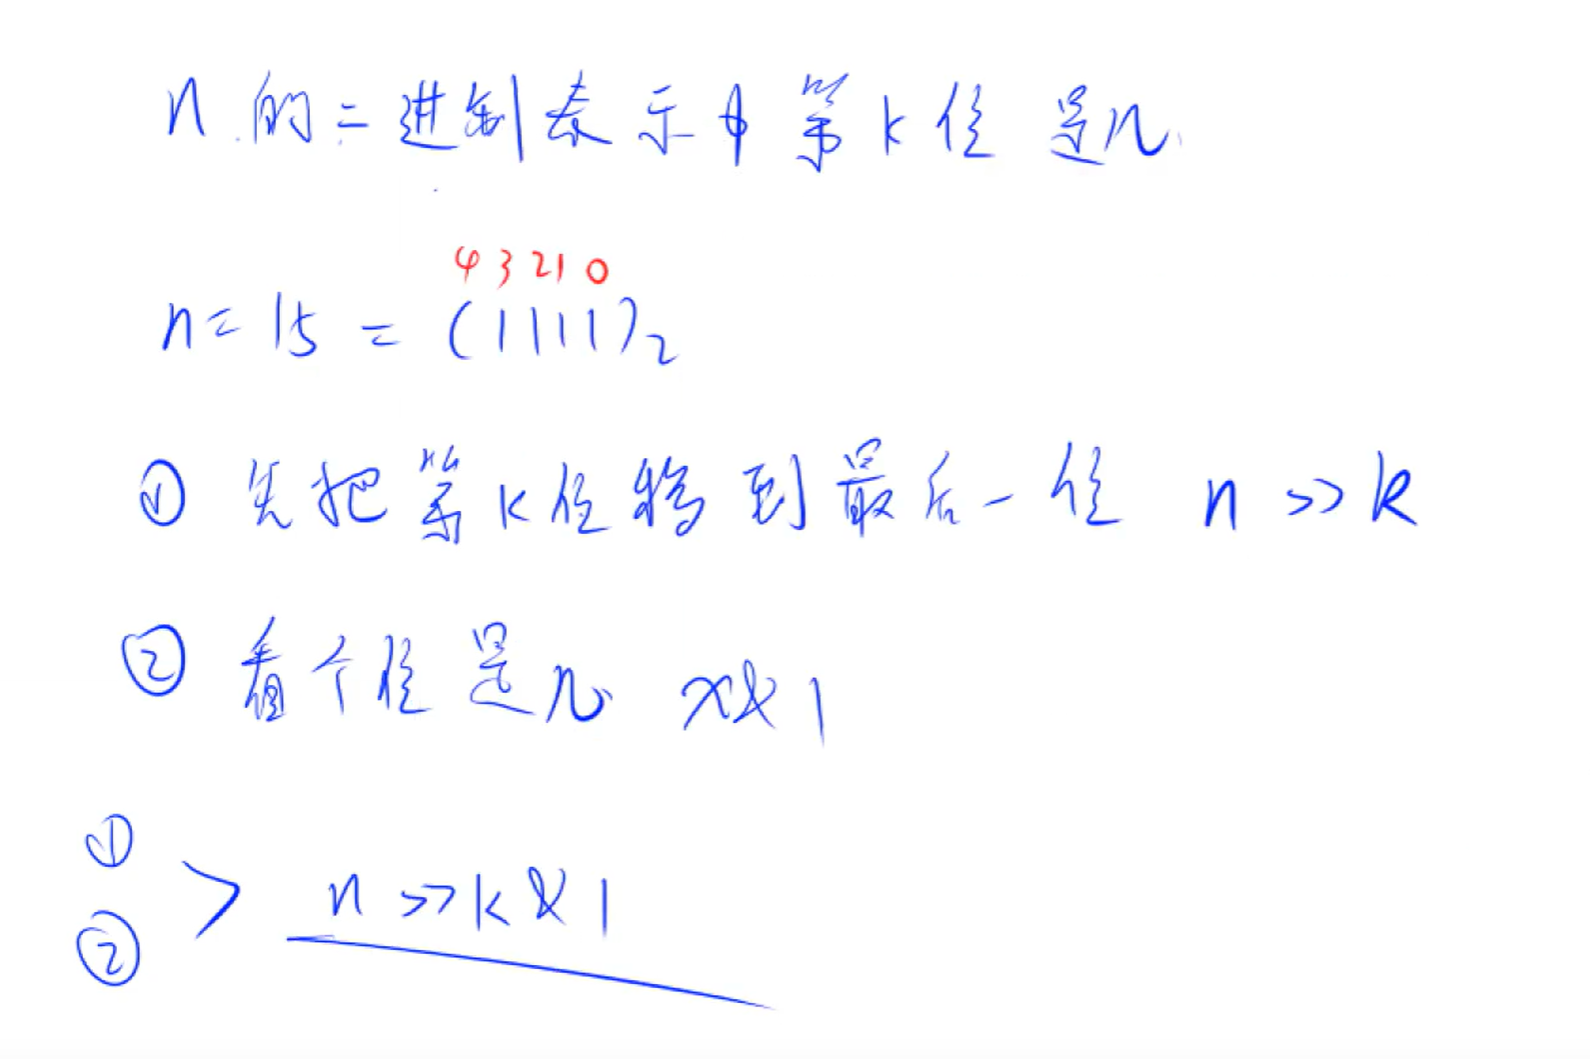 n的二进制表示中第k位是几
4 3 2 1 0
n=15=(1111)₂
① 先把第k位移到最后一位 n>>k
② 看个位是几 x&1
①
② > n>>k&1